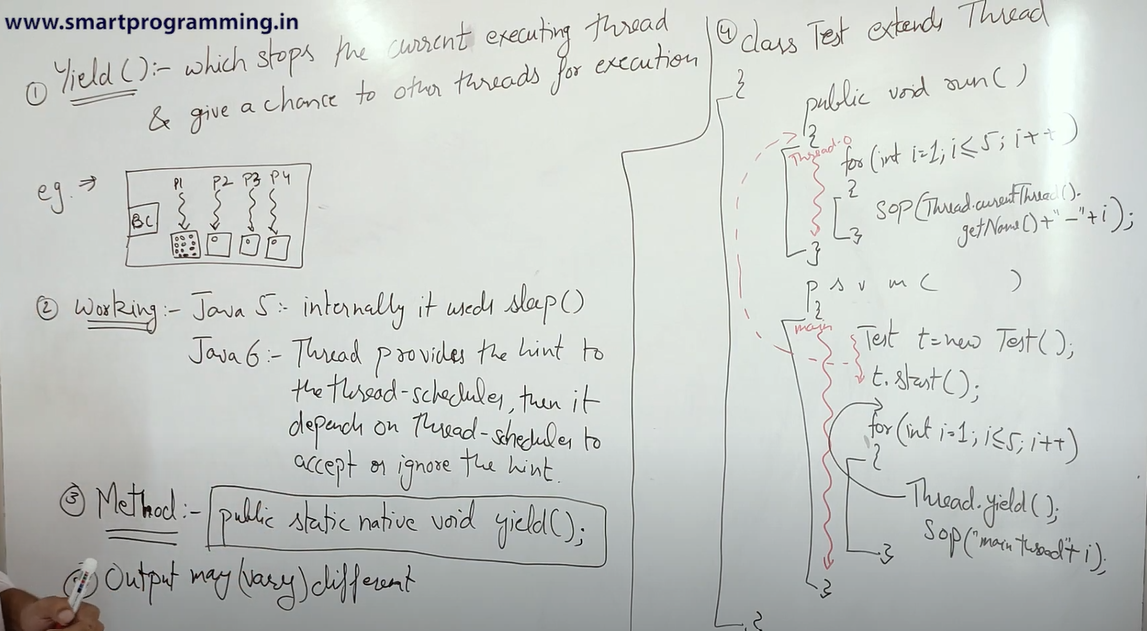 www.smartprogramming.in
① Yield():- which stops the current executing thread
& give a chance to other threads for execution
eg. ⇒
P1 P2 P3 P4
BC
② Working:- Java 5:- internally it used sleep()
Java 6:- Thread provides the hint to
the thread-scheduler, then it
depend on Thread-scheduler to
accept or ignore the hint.
③ Method:- public static native void yield();
Output may (vary) different
④ class Test extends Thread
{
public void run()
{
Thread-0
for(int i=1; i≤5; i++)
{
SOP(Thread.currentThread().
getName()+"-"+i);
}
}
p s v m ( )
{
main
Test t=new Test();
t.start();
for(int i=1; i≤5; i++)
{
Thread.yield();
SOP("main thread"+i);
}
}
}